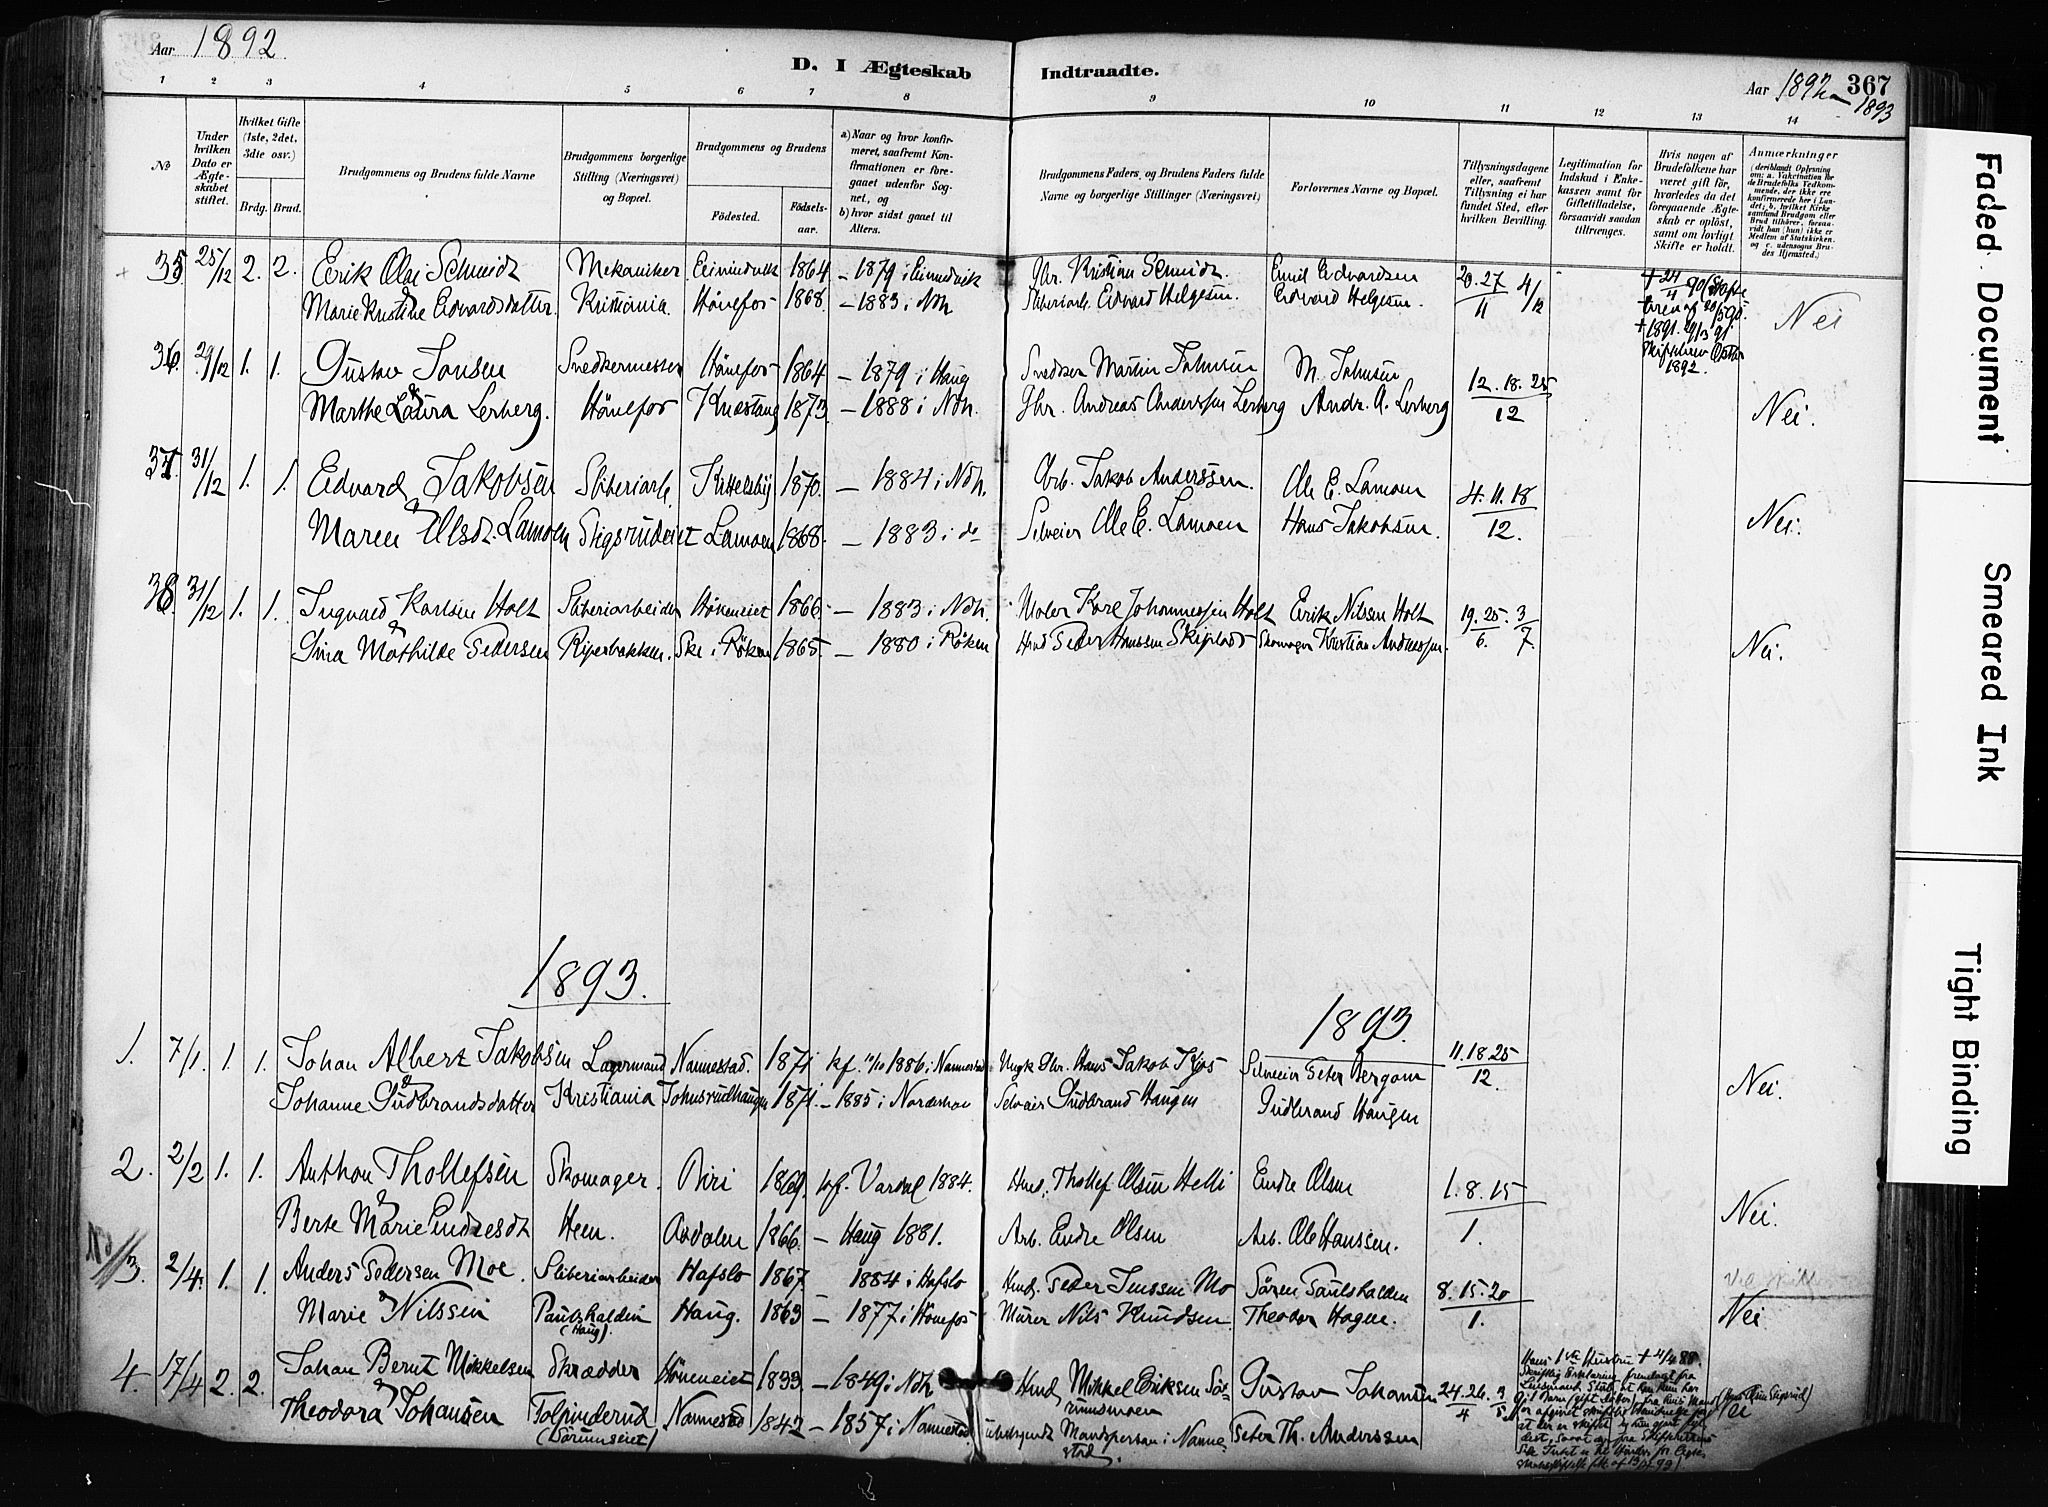 Aar 1892
D. I Ægteskab Indtraadte.
Aar 1892 – 1893
367
1 2 3 4 5 6 7 8 9 10 11 12 13 14
No
Under hvilken Dato er Ægteskabet stiftet.
Hvilket Gifte (1ste, 2det, 3die osv.)
Brdg. Brud.
Brudgommens og Brudens fulde Navne
Brudgommens borgerlige Stilling (Næringsvei) og Bopæl.
Brudgommens og Brudens
Fødested. Fødselsaar.
a) Naar og hvor konfirmeret, saafremt Konfirmationen er foregaaet udenfor Sognet, og
b) hvor sidst gaaet til Alters.
Brudgommens Faders og Brudens Faders fulde Navne og borgerlige Stillinger (Næringsvei)
Forlovernes Navne og Bopæl.
Tillysningsdagene eller, saafremt Tillysning ei har fundet Sted, efter hvilken Bevilling.
Legitimation for Indskud i Enkekassen samt for Giftetilladelse, forsaavidt saadan tiltrænges.
Hvis nogen af Brudefolkene har været gift før, hvorledes da det foregaaende Ægteskab er opløst, samt om lovligt Skifte er holdt.
Anmærkninger
35 25/12 2. 2. Erik Olai Schmidt Mekaniker Eivindvik 1864 – 1879 i Eivindvik Gbr. Kristian Schmidt. Emil Edvardsen 20. 27 4/12
& Marie Kristine Edvardsdatter. Kristiania. Hønefos 1868. – 1883 i Ndh. Sliberiarb. Edvard Helgesen. Edvard Helgesen. 11 Nei
1892.
36 29/12 1. 1. Gustav Jonsen Snedkermester Hønefos 1864 – 1879 i Haug Snedker Martin Johnsen M. Johnsen 12. 18. 25
& Marthe Laura Lerberg. Hønefos Knestang 1873. – 1888 i Ndh. Gbr. Andreas Anderssen Lerberg Andr. A. Lerberg 12 Nei.
37. 31/12 1. 1. Edvard Jakobsen Sliberiarb. Kittelsby 1870. – 1884 i Ndh. Arb. Jakob Anderssen. Ole E. Lamoen 4. 11. 18
& Maren Olsdt. Lamoen Stigsrudeiet Lamoen 1868. – 1883 i do Selveier Ole E. Lamoen Hans Jakobsen. 12. Nei.
38. 31/12 1. 1. Ingvald Karlsen Holt Sliberiarbeider Høkeneiet 1866. – 1883 i Ndh. Maler Karl Johannessen Holt Erik Nilssen Holt 19. 25. 3
& Lina Mathilde Pedersen Riperbakken. Ske i Røken 1865. – 1880 i Røken Hmd Peder Hanssen Skiplast Skomager Kristian Andreassen. 6. 7. Nei.
1893. 1893.
1. 7/1. 1. 1. Johan Albert Jakobsen Lagermand Nannestad. 1871 kf. 10/10 1886 i Nannestad Ungk Gbr. Hans Jakob Kjos Selveier Peter Bergom 11. 18. 25
& Johanne Gudbrandsdatter Kristiania Johnsrudhaugen 1871. – 1885 i Norderhov Selveier Gudbrand Haugen Gudbrand Haugen 12. Nei.
2. 2/2 1. 1. Anthon Thollefsen Skomager. Biri 1869. kf. Vardal 1884. Hmd. Thollef Olsen Helli Endre Olsen 1. 8. 15
& Berte Marie Endresdt Heen. Aadalen 1866. – Haug 1881. Arb. Endre Olsen Arb. Ole Hanssen. 1. Nei.
3. 2/4. 1. 1. Anders Pedersen Moe. Sliberiarbeider Hafslo 1867. 1884 i Hafslo Hmd. Peder Jenssen Mo Søren Paulshalden 8. 15. 20
& Marie Nilssen Paulshalden (Haug). Haug. 1863 – 1877 i Hønefos Murer Nils Knudsen. Theodor Hagne. 1. Nei
4. 17/4 2. 2. Johan Bernt Mikkelsen Skrædder Høneneiet 1833. – 1849 i Ndh Hmd Mikkel Eriksen Sørumsmoen Gustav Johansen 24. 26. 3
& Theodora Johansen Tolpinderud (Sørumseiet) Nannestad 1842 – 1857 i Nannestad Mandsperson i Nannestad. Peter Th. Anderssen 4 5. Nei
Hans 1ste Hustru † 4/4 88.
Faded Document
Smeared Ink
Tight Binding